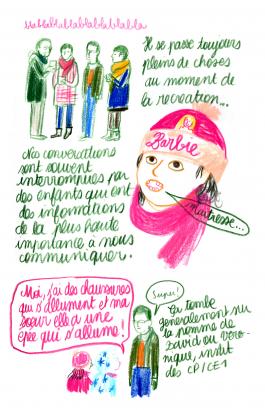 blablablablablablablabla
Il se passe toujours
pleins de choses
au moment de
la recreation...
Barbie
Nos conversations
sont souvent
interrompues par
des enfants qui ont
des informations
de la plus haute
importance à nous
communiquer.
maitresse...
Moi, j'ai des chaussures
qui s'allument et ma
sœur elle a une
épée qui s'allume!
Super!
Ça tombe
generalement sur
la pomme de
David ou Vero-
nique, instit
des CP/CE1